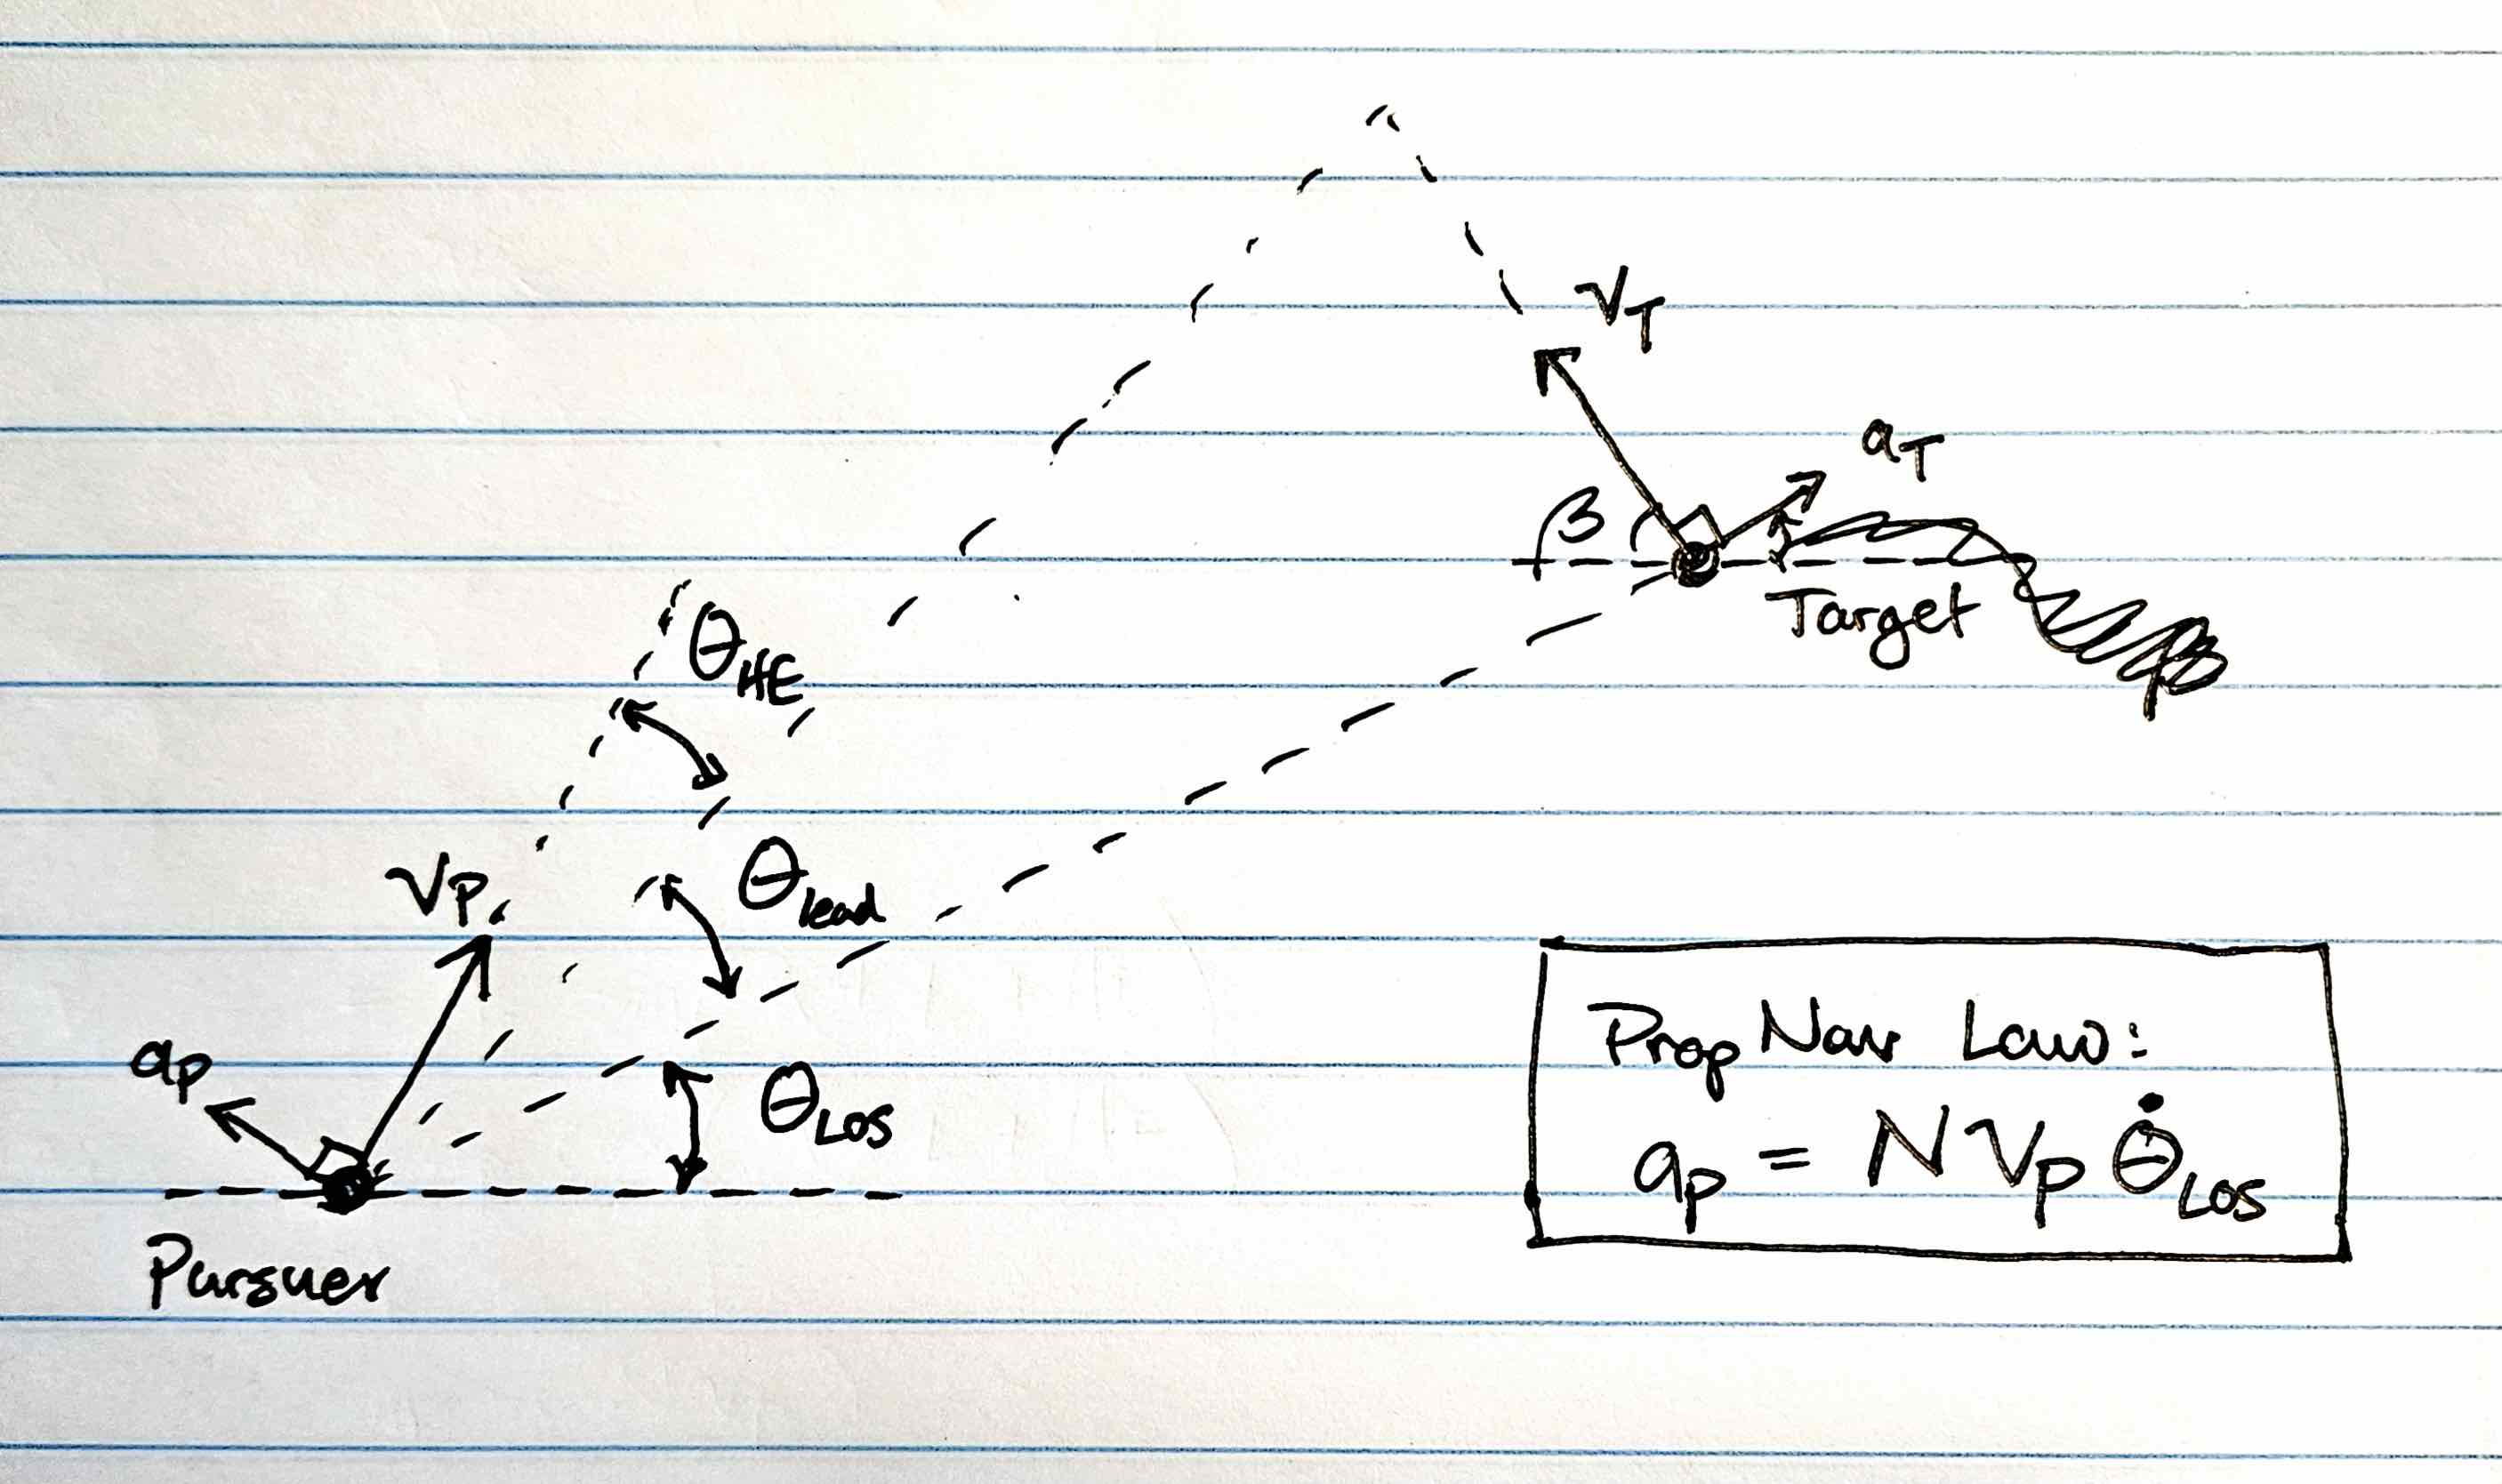 V_T
a_T
β
Target
θ_HE
θ_lead
V_P
a_P
θ_LOS
Pursuer
Prop Nav Law:
a_P = N V_P θ̇_LOS